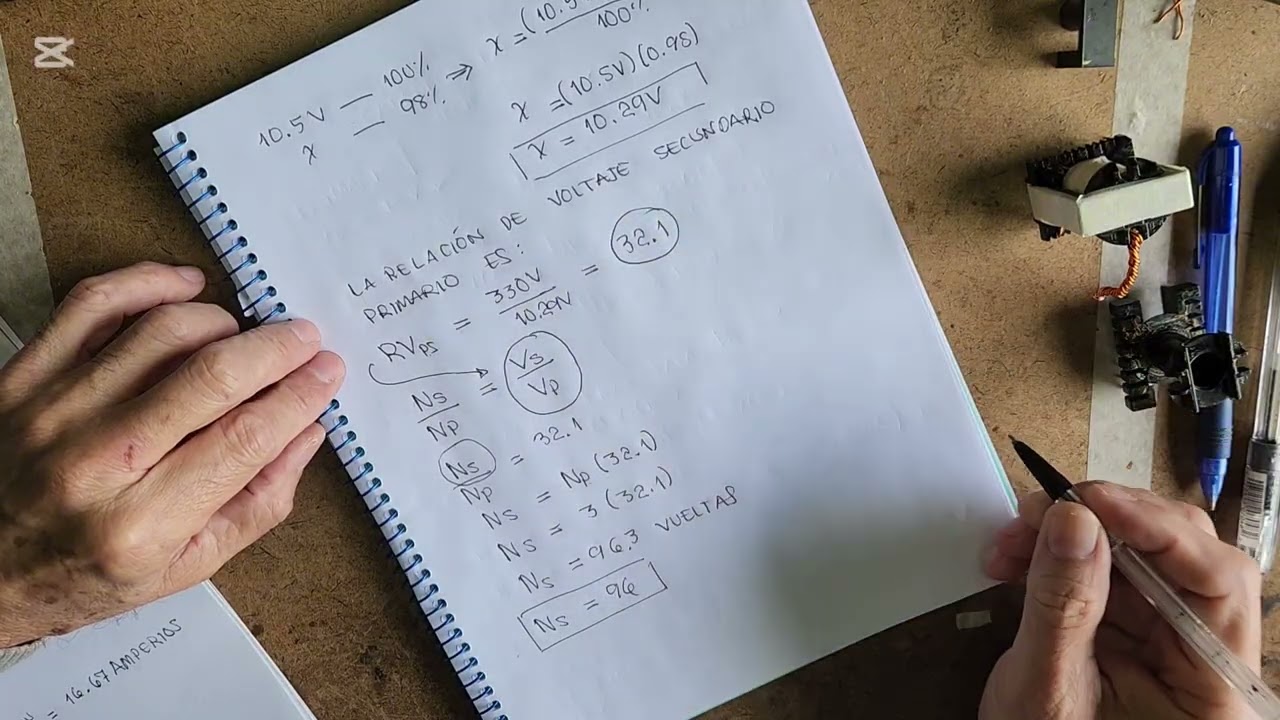 10.5V — 100%
x — 98% ⇒ x = (10.5
100%
x = (10.5V)(0.98)
x = 10.29V
LA RELACIÓN DE VOLTAJE SECUNDARIO
PRIMARIO ES:
RVPS = 330V / 10.29V = 32.1
Ns/Np = Vs/Vp
Ns/Np = 32.1
Ns = Np (32.1)
Ns = 3 (32.1)
Ns = 96.3 VUELTAS
Ns = 96
= 16.67 AMPERIOS